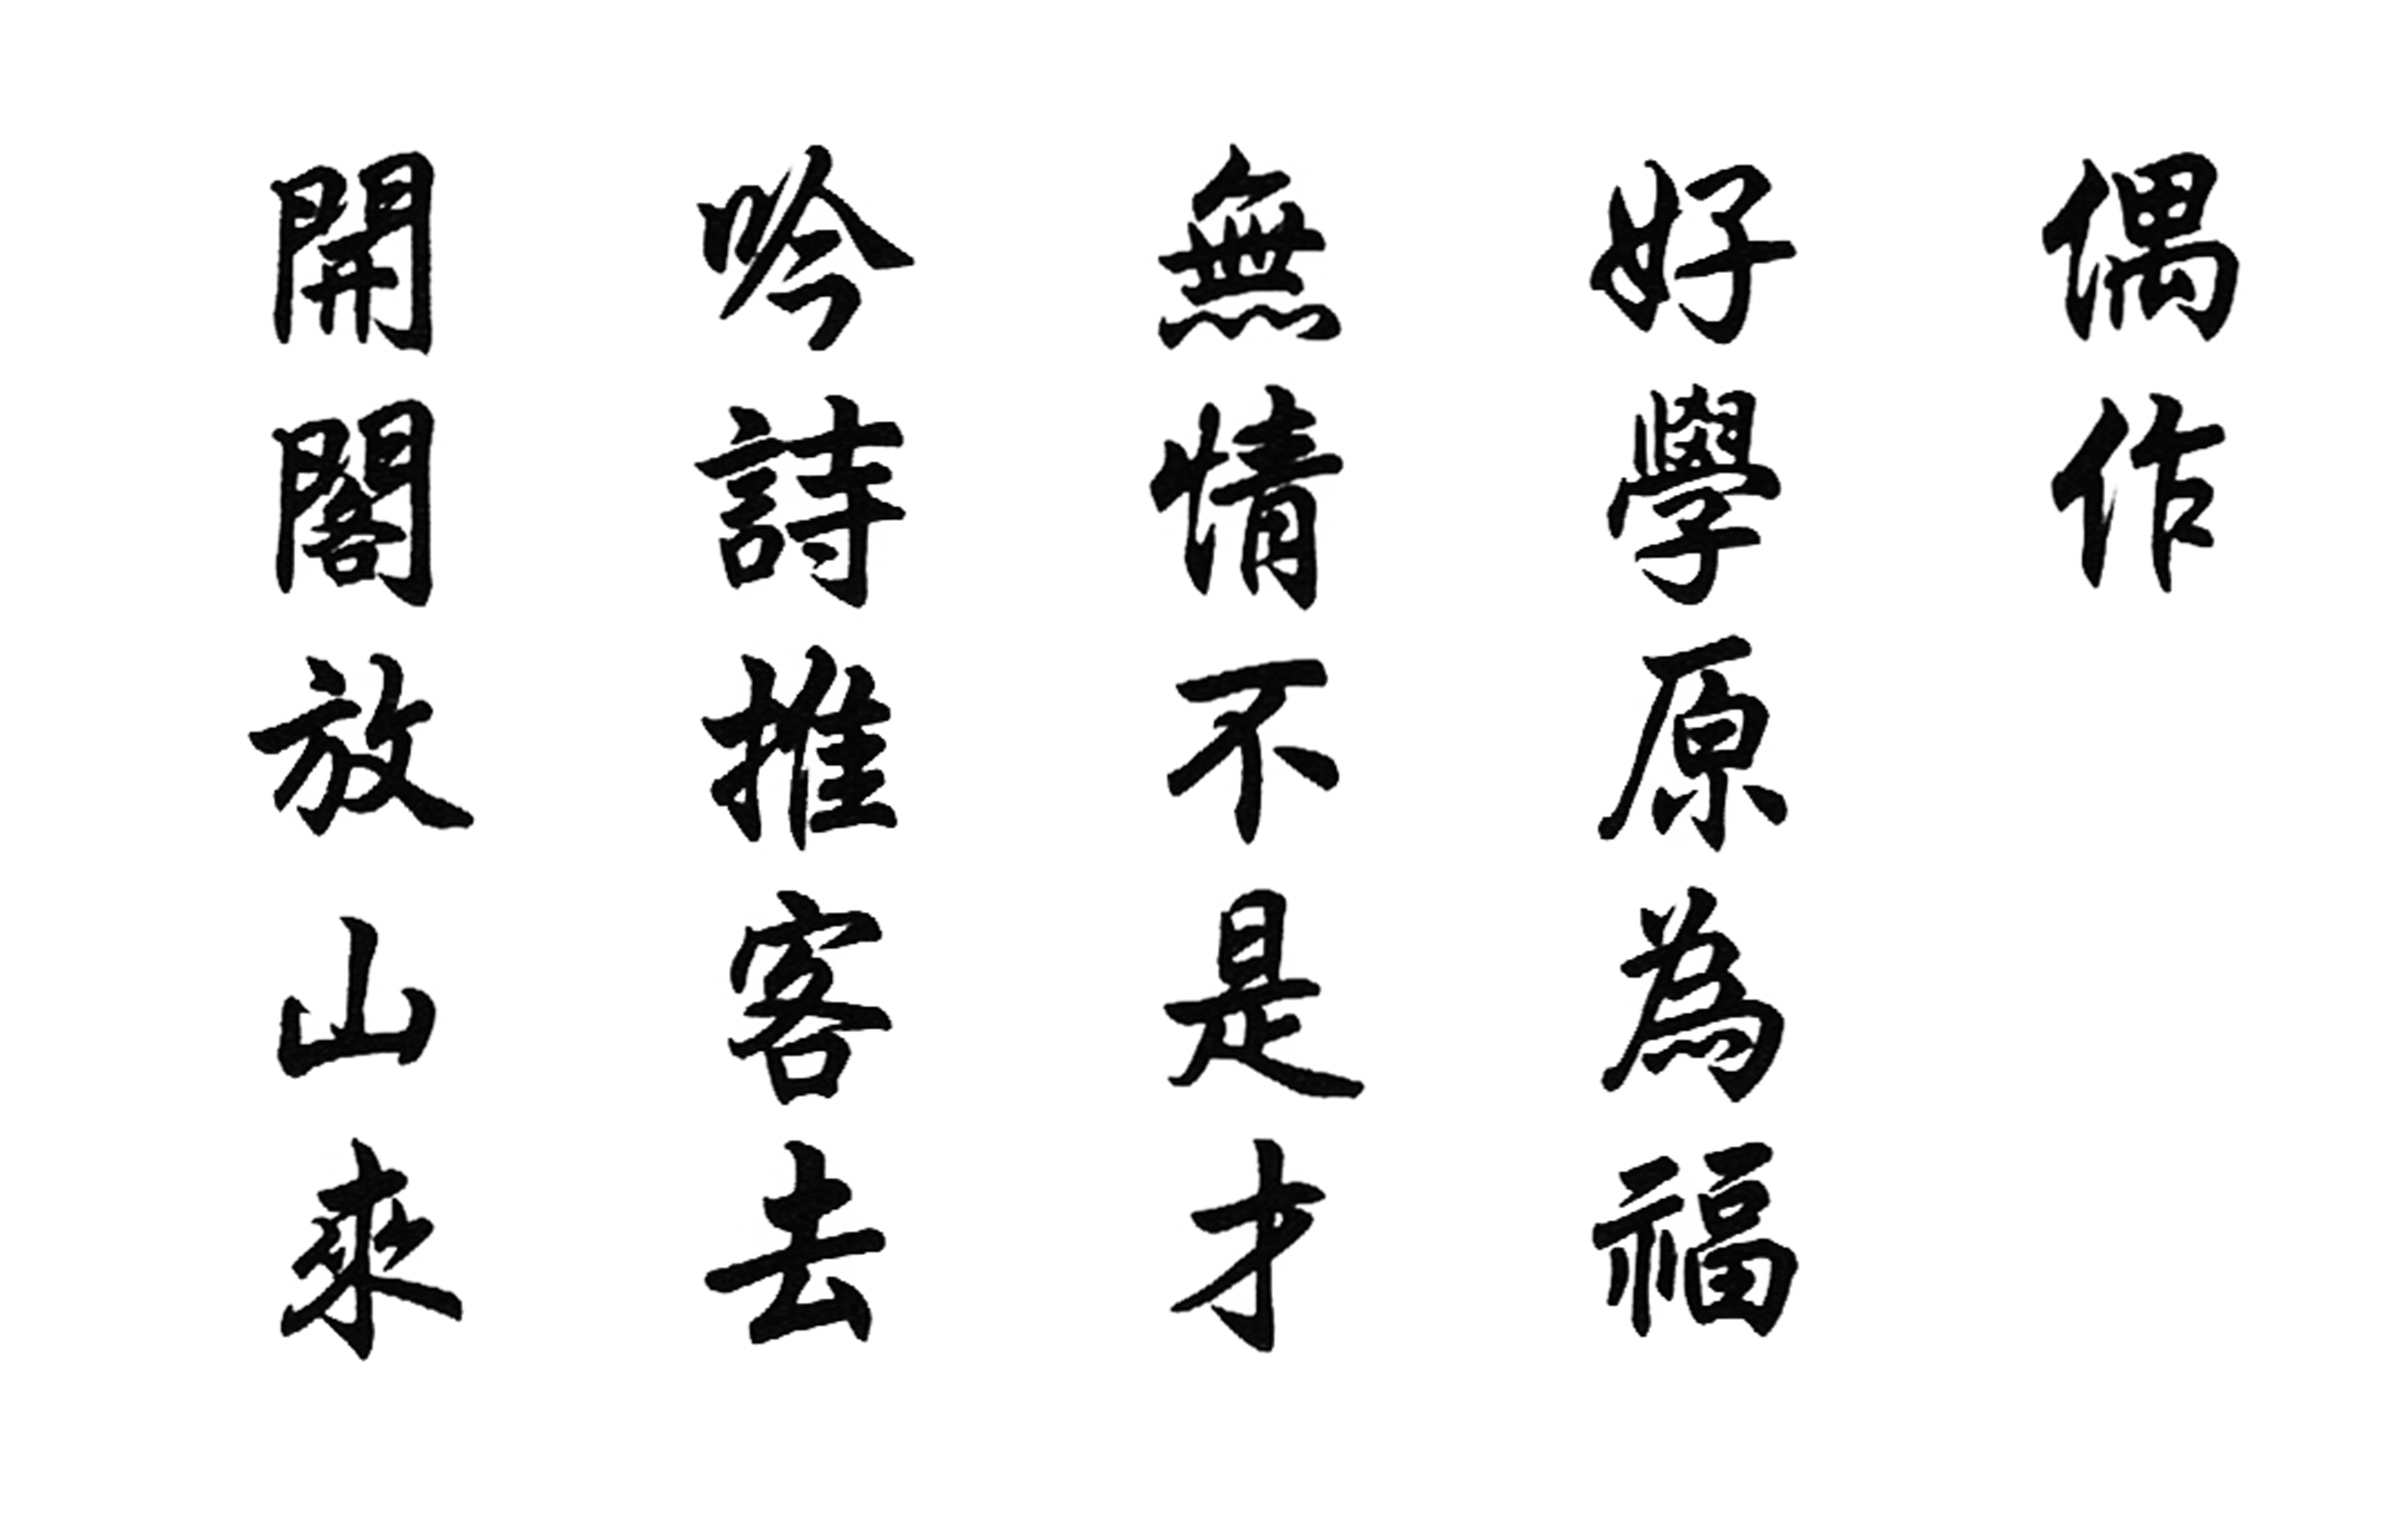 偶作
好學原為福
無情不是才
吟詩推客去
開閣放山來